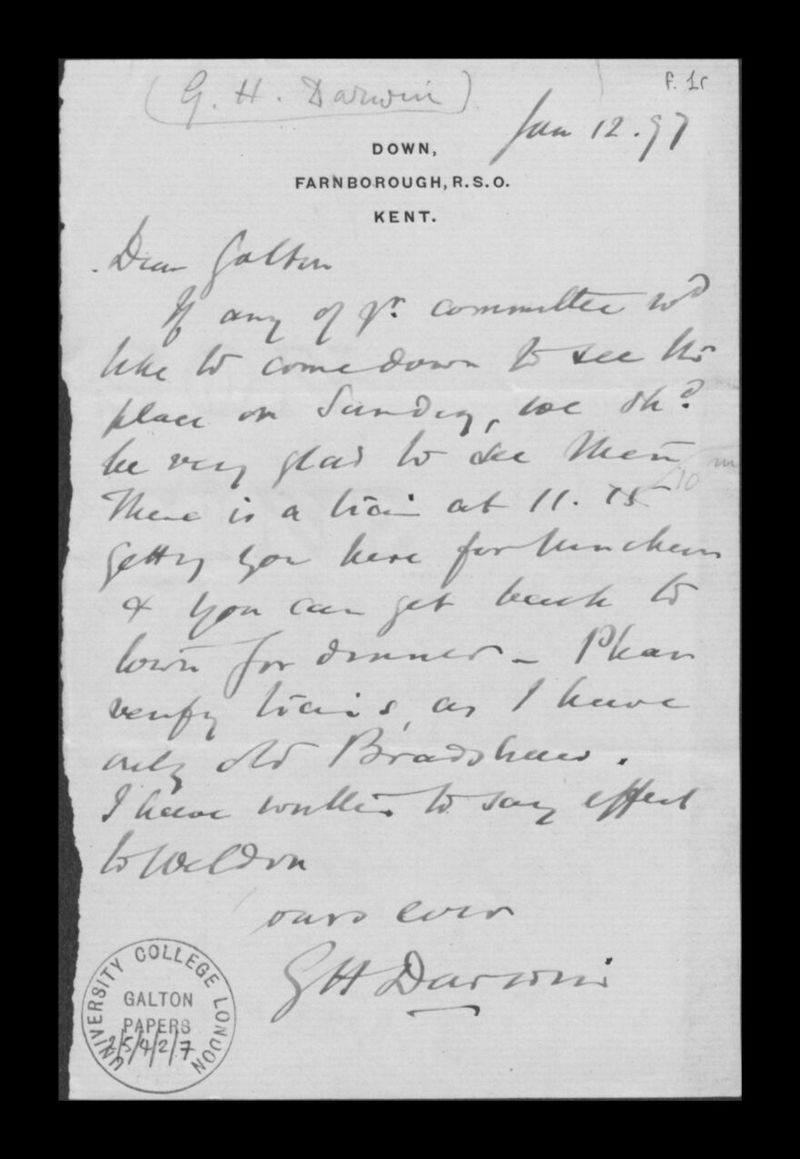 (G. H. Darwin)
f. 1r
Jan 12. 97
DOWN,
FARNBOROUGH, R.S.O.
KENT.
Dear Galton
If any of yr. committee wd
like to come down to see this
place on Sunday, we shd.
be very glad to see them
There is a train at 11.15
10
getting you here for luncheon
& you can get back to
town for dinner – Please
verify trains, as I have
only old Bradshaw.
I have written to say effect
to Weldon
ours ever
G H Darwin
UNIVERSITY COLLEGE LONDON
GALTON
PAPERS
2/5/4/2/7